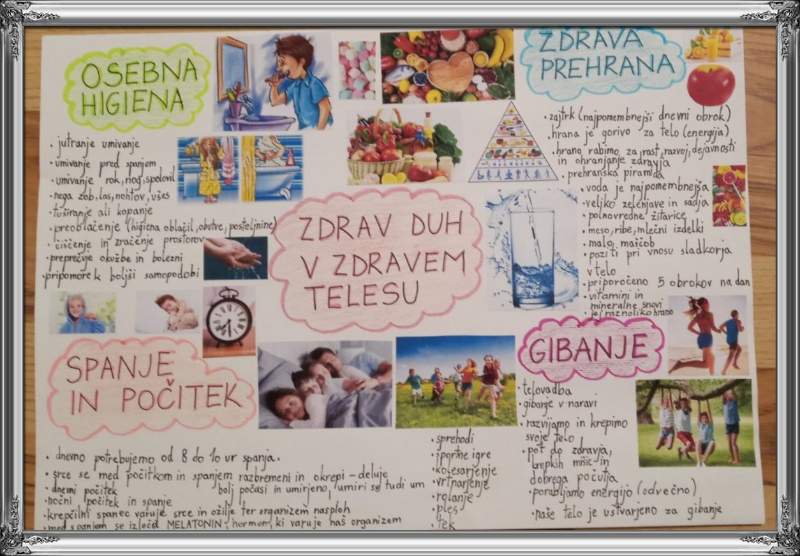 OSEBNA
HIGIENA
• jutranje umivanje
• umivanje pred spanjem
• umivanje rok, nog, spolovil
• nega zob, las, nohtov, ušes
• tuširanje ali kopanje
• preoblačenje (higiena oblačil, obutve, posteljnine)
• čiščenje in zračenje prostorov
• preprečuje okužbe in bolezni
pripomore k boljši samopodobi
ZDRAVA
PREHRANA
• zajtrk (najpomembnejši dnevni obrok)
• hrana je gorivo za telo (energija)
• hrano rabimo za rast, razvoj, dejavnosti
in ohranjanje zdravja
• prehranska piramida
• voda je najpomembnejša
• veliko zelenjave in sadja
• polnovredne žitarice
• meso, ribe, mlečni izdelki
• malo maščob
• paziti pri vnosu sladkorja
v telo
• priporočeno 5 obrokov na dan
• vitamini in
mineralne snovi
• jej raznoliko hrano
ZDRAV DUH
V ZDRAVEM
TELESU
SPANJE
IN POČITEK
• dnevno potrebujemo od 8 do 10 ur spanja.
• srce se med počitkom in spanjem razbremeni in okrepi - deluje
bolj počasi in umirjeno, umiri se tudi um
• dnevni počitek
• nočni počitek in spanje
• krepčilni spanec varuje srce in ožilje ter organizem nasploh
• med spanjem se izloča MELATONIN, hormon, ki varuje naš organizem
GIBANJE
• telovadba
• gibanje v naravi
• razvijamo in krepimo
svoje telo
• pot do zdravja,
krepkih mišic in
dobrega počutja
• porabljamo energijo (odvečno)
• naše telo je ustvarjeno za gibanje
• sprehodi
• športne igre
• kolesarjenje
• vrtnarjenje
• rolanje
• ples
• tek